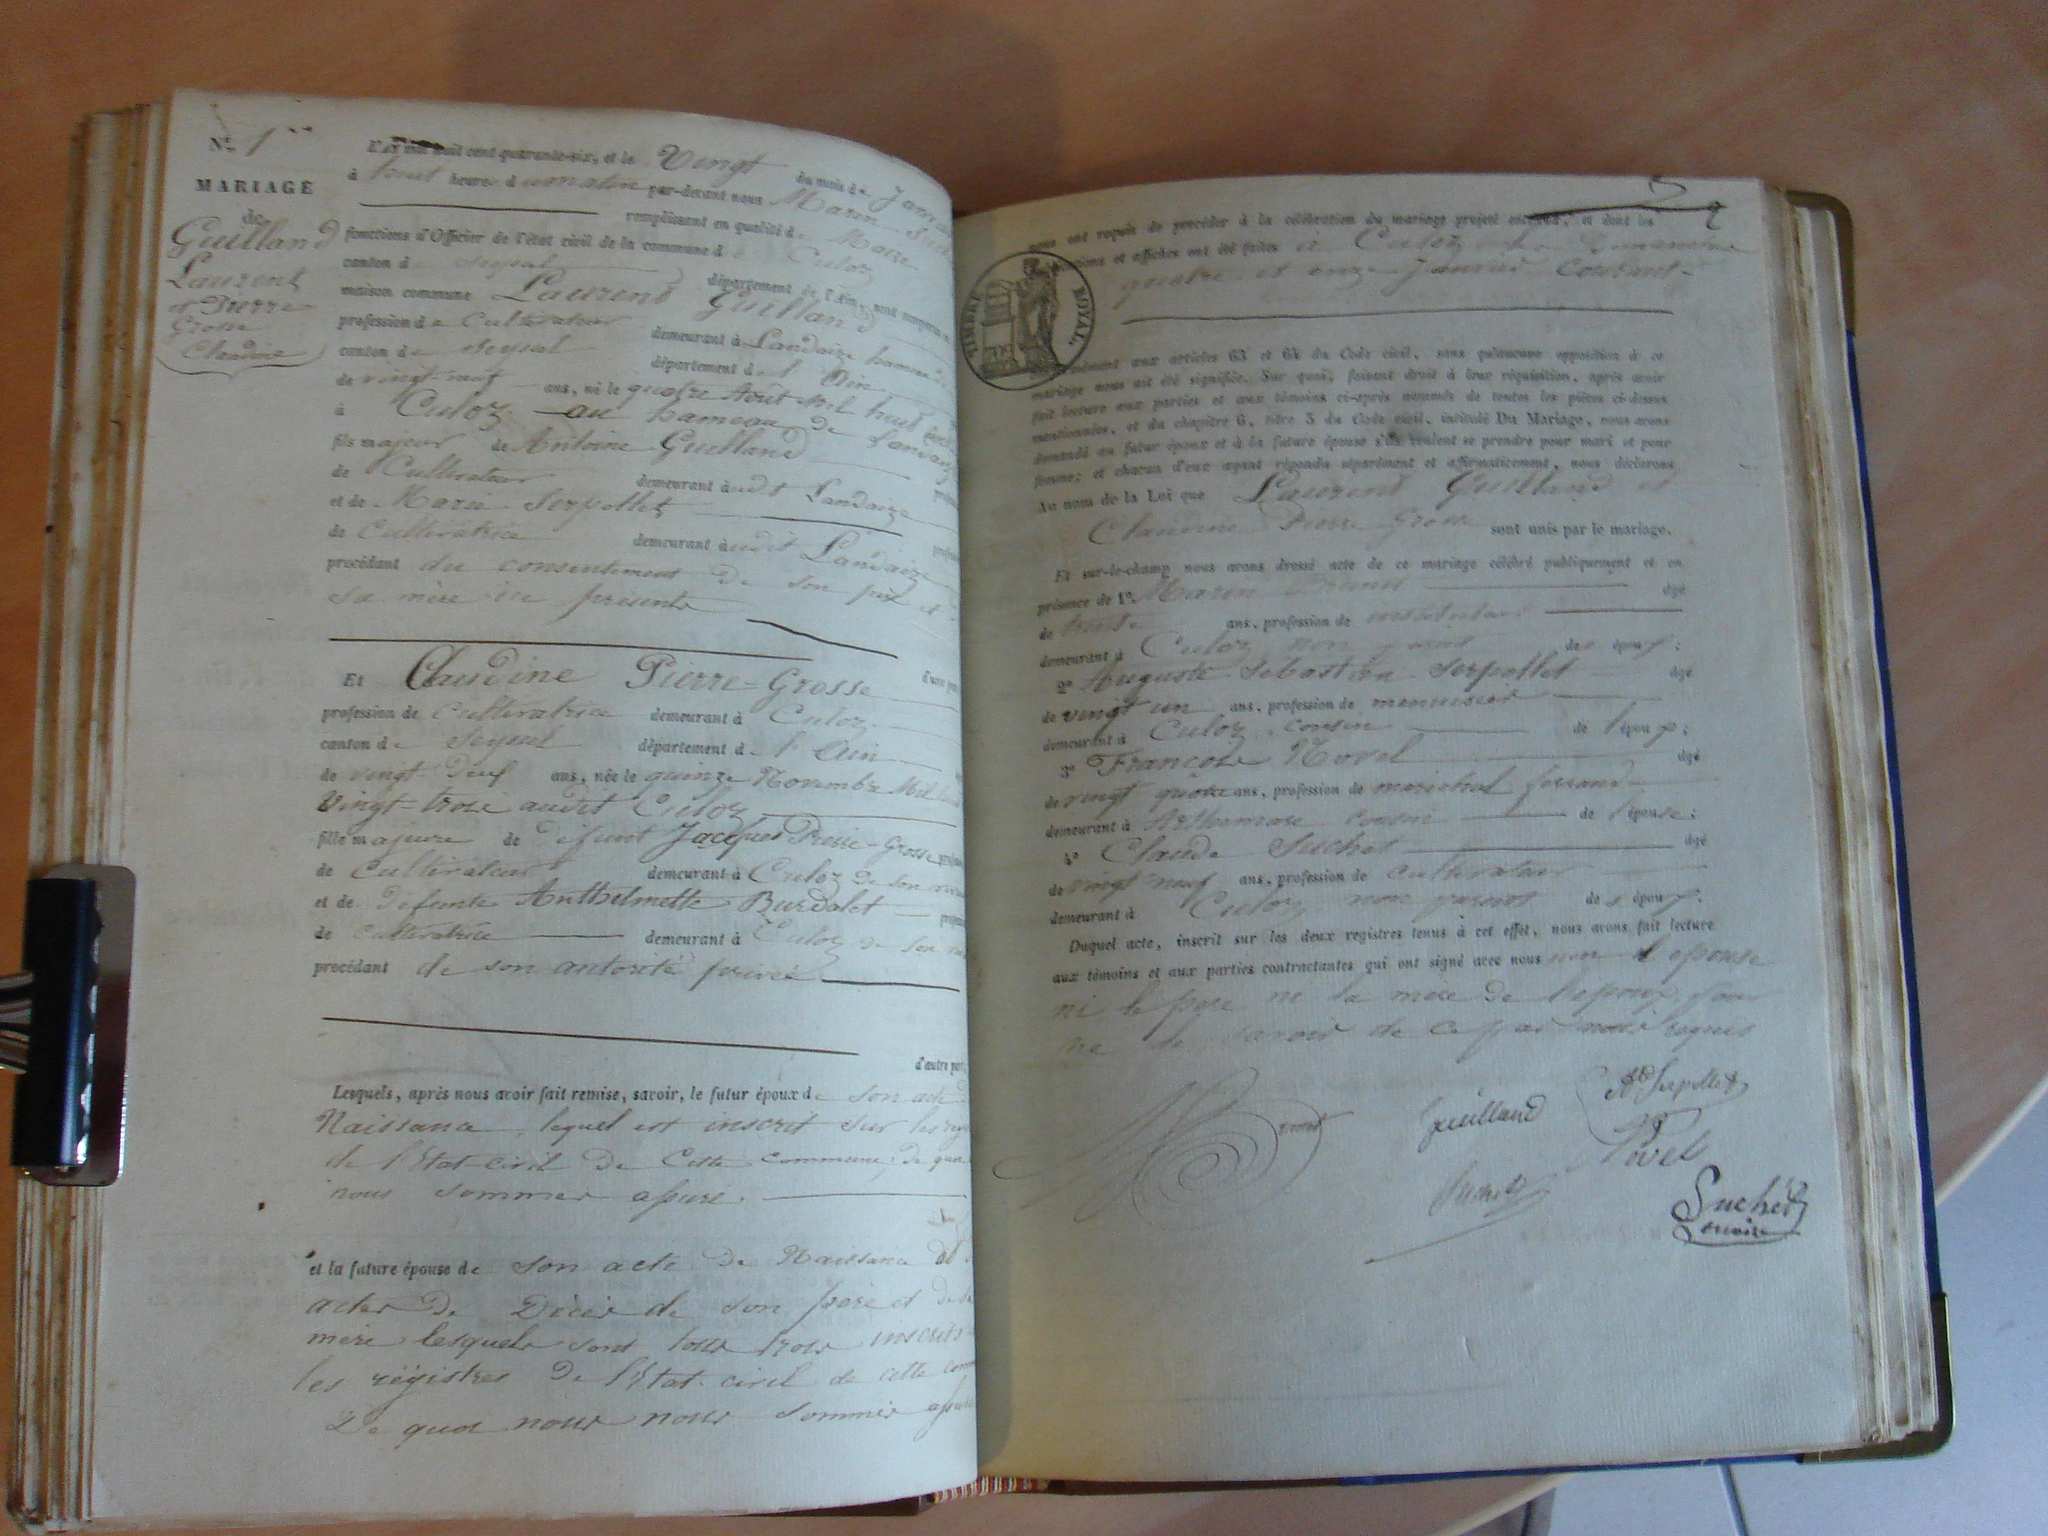 N.º 1
MARIAGE
de
Guilland
Laurent
et Pierre
Grosse
Claudine
L'an mil huit cent quarante-six, et le Vingt du mois de
à huit heures d u matin par-devant nous Marin
remplissant en qualité de Maire
fonctions d'Officier de l'état civil de la commune d e Culoz
canton d e Seyssel département de l'Ain, sont comparus
maison commune Laurent Guilland
profession d e Cultivateur demeurant à Landaize hameau
canton d e Seyssel département d e l'Ain
de vingt-neuf ans, né le quatre Août Mil huit
à Culoz au hameau de Landaize
fils majeur de Antoine Guilland
de Cultivateur demeurant audit Landaize
et de Marie Serpollet
de Cultivatrice demeurant audit Landaize
procédant du consentement de son père et
sa mère ici présents
Et Claudine Pierre-Grosse d'une part
profession de Cultivatrice demeurant à Culoz
canton d e Seyssel département d e l'Ain
de vingt-deux ans, née le quinze Novembre Mil huit
Vingt-trois audit Culoz
fille majeure de défunt Jacques Pierre-Grosse
de Cultivateur demeurant à Culoz de son vivant
et de défunte Anthelmette Burdalet
de Cultivatrice demeurant à Culoz de son
procédant de son autorité privée
d'autre part,
Lesquels, après nous avoir fait remise, savoir, le futur époux d e son acte
Naissance, lequel est inscrit sur les
de l'Etat-civil de Cette commune, de quoi
nous sommes assuré.
et la future épouse de son acte de Naissance
actes de Décès de son père et de sa
mère lesquels sont tous trois inscrits
les régistres de l'Etat-civil de cette
De quoi nous nous sommes
2
nous ont requis de procéder à la célébration du mariage projeté entr'eux, et dont les
et affiches ont été faites à Culoz
quatre et onze Janvier Courant
TIMBRE ROYAL.
aux articles 63 et 64 du Code civil, sans qu'aucune opposition à ce
mariage nous ait été signifiée. Sur quoi, faisant droit à leur réquisition, après avoir
fait lecture aux parties et aux témoins ci-après nommés de toutes les pièces ci-dessus
mentionnées, et du chapitre 6, titre 5 du Code civil, intitulé Du Mariage, nous avons
demandé au futur époux et à la future épouse s'ils veulent se prendre pour mari et pour
femme; et chacun d'eux ayant répondu séparément et affirmativement, nous déclarons
Au nom de la Loi que Laurent Guilland et
Claudine Pierre Grosse sont unis par le mariage.
Et sur-le-champ nous avons dressé acte de ce mariage célébré publiquement et en
présence de 1º Marin âgé
de ans, profession de instituteur
demeurant à Culoz non parent des époux;
2º Auguste Sebastien Serpollet âgé
de vingt un ans, profession de menuisier
demeurant à Culoz cousin de l'époux;
3º François Novel âgé
de vingt quatre ans, profession de maréchal ferrand
demeurant à cousin de l'épouse;
4º Claude Suchet âgé
de vingt neuf ans, profession de cultivateur
demeurant à Culoz non parent des époux.
Duquel acte, inscrit sur les deux registres tenus à cet effet, nous avons fait lecture
aux témoins et aux parties contractantes qui ont signé avec nous non l'épouse
ni le père ni la mère de l'époux pour
ne le savoir de ce par nous requis
Guilland
Serpollet
Novel
Suchet
Suchet
maire